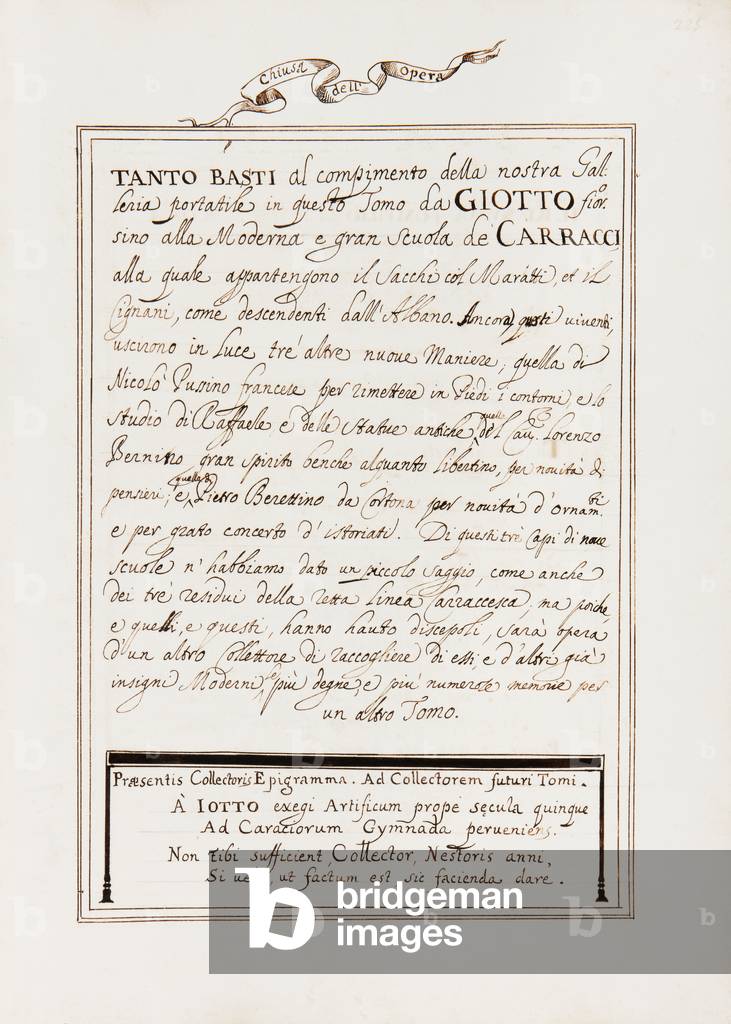 225
Chiusa dell' Opera
TANTO BASTI al compimento della nostra Gal:
leria portatile in questo Tomo da GIOTTO fior.o
sino alla Moderna e gran scuola de CARRACCI
alla quale appartengono il Sacchi col Maratti, et il
Cignani, come descendenti dall'Albano. Ancora questi viventi,
uscirono in Luce tré altre nuove Maniere; quella di
Nicolò Pussino francese per rimettere in Piedi i contorni, e lo
studio di Raffaele e delle statue antiche, quella del Cau. Lorenzo
Bernino gran spirito benche alquanto libertino, per novità di
pensieri; e quella di Pietro Berettino da Cortona per novità d'ornam.ti
e per grato concerto d'istoriati. Di questi trè Capi di nove
scuole n'habbiamo dato un piccolo saggio, come anche
dei tré residui della retta linea Carraccesca; ma poiche,
e quelli, e questi, hanno hauto discepoli, sarà opera
d'un altro Collettore di raccogliere di essi, e d'altri già
insigni Moderni le più degne, e più numerose memorie per
un altro Tomo.
Præsentis Collectoris Epigramma. Ad Collectorem futuri Tomi.
À IOTTO exegi Artificum propè sęcula quinque
Ad Caraciorum Gymnada perueniens.
Non tibi sufficient, Collector, Nestoris anni,
Si ut factum est sic facienda dare.
bridgeman
images